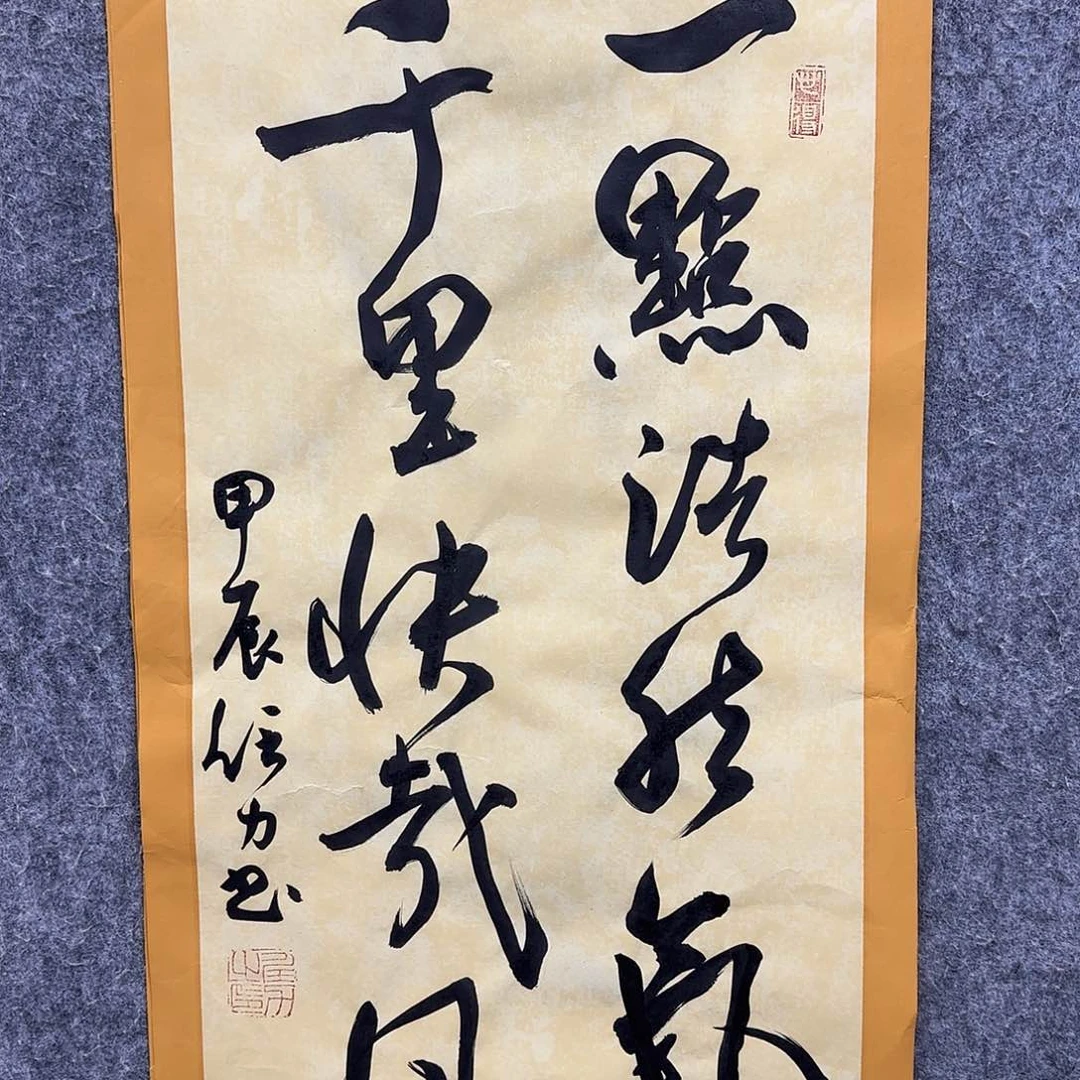 一點浩然氣
千里快哉風
甲辰 任力书